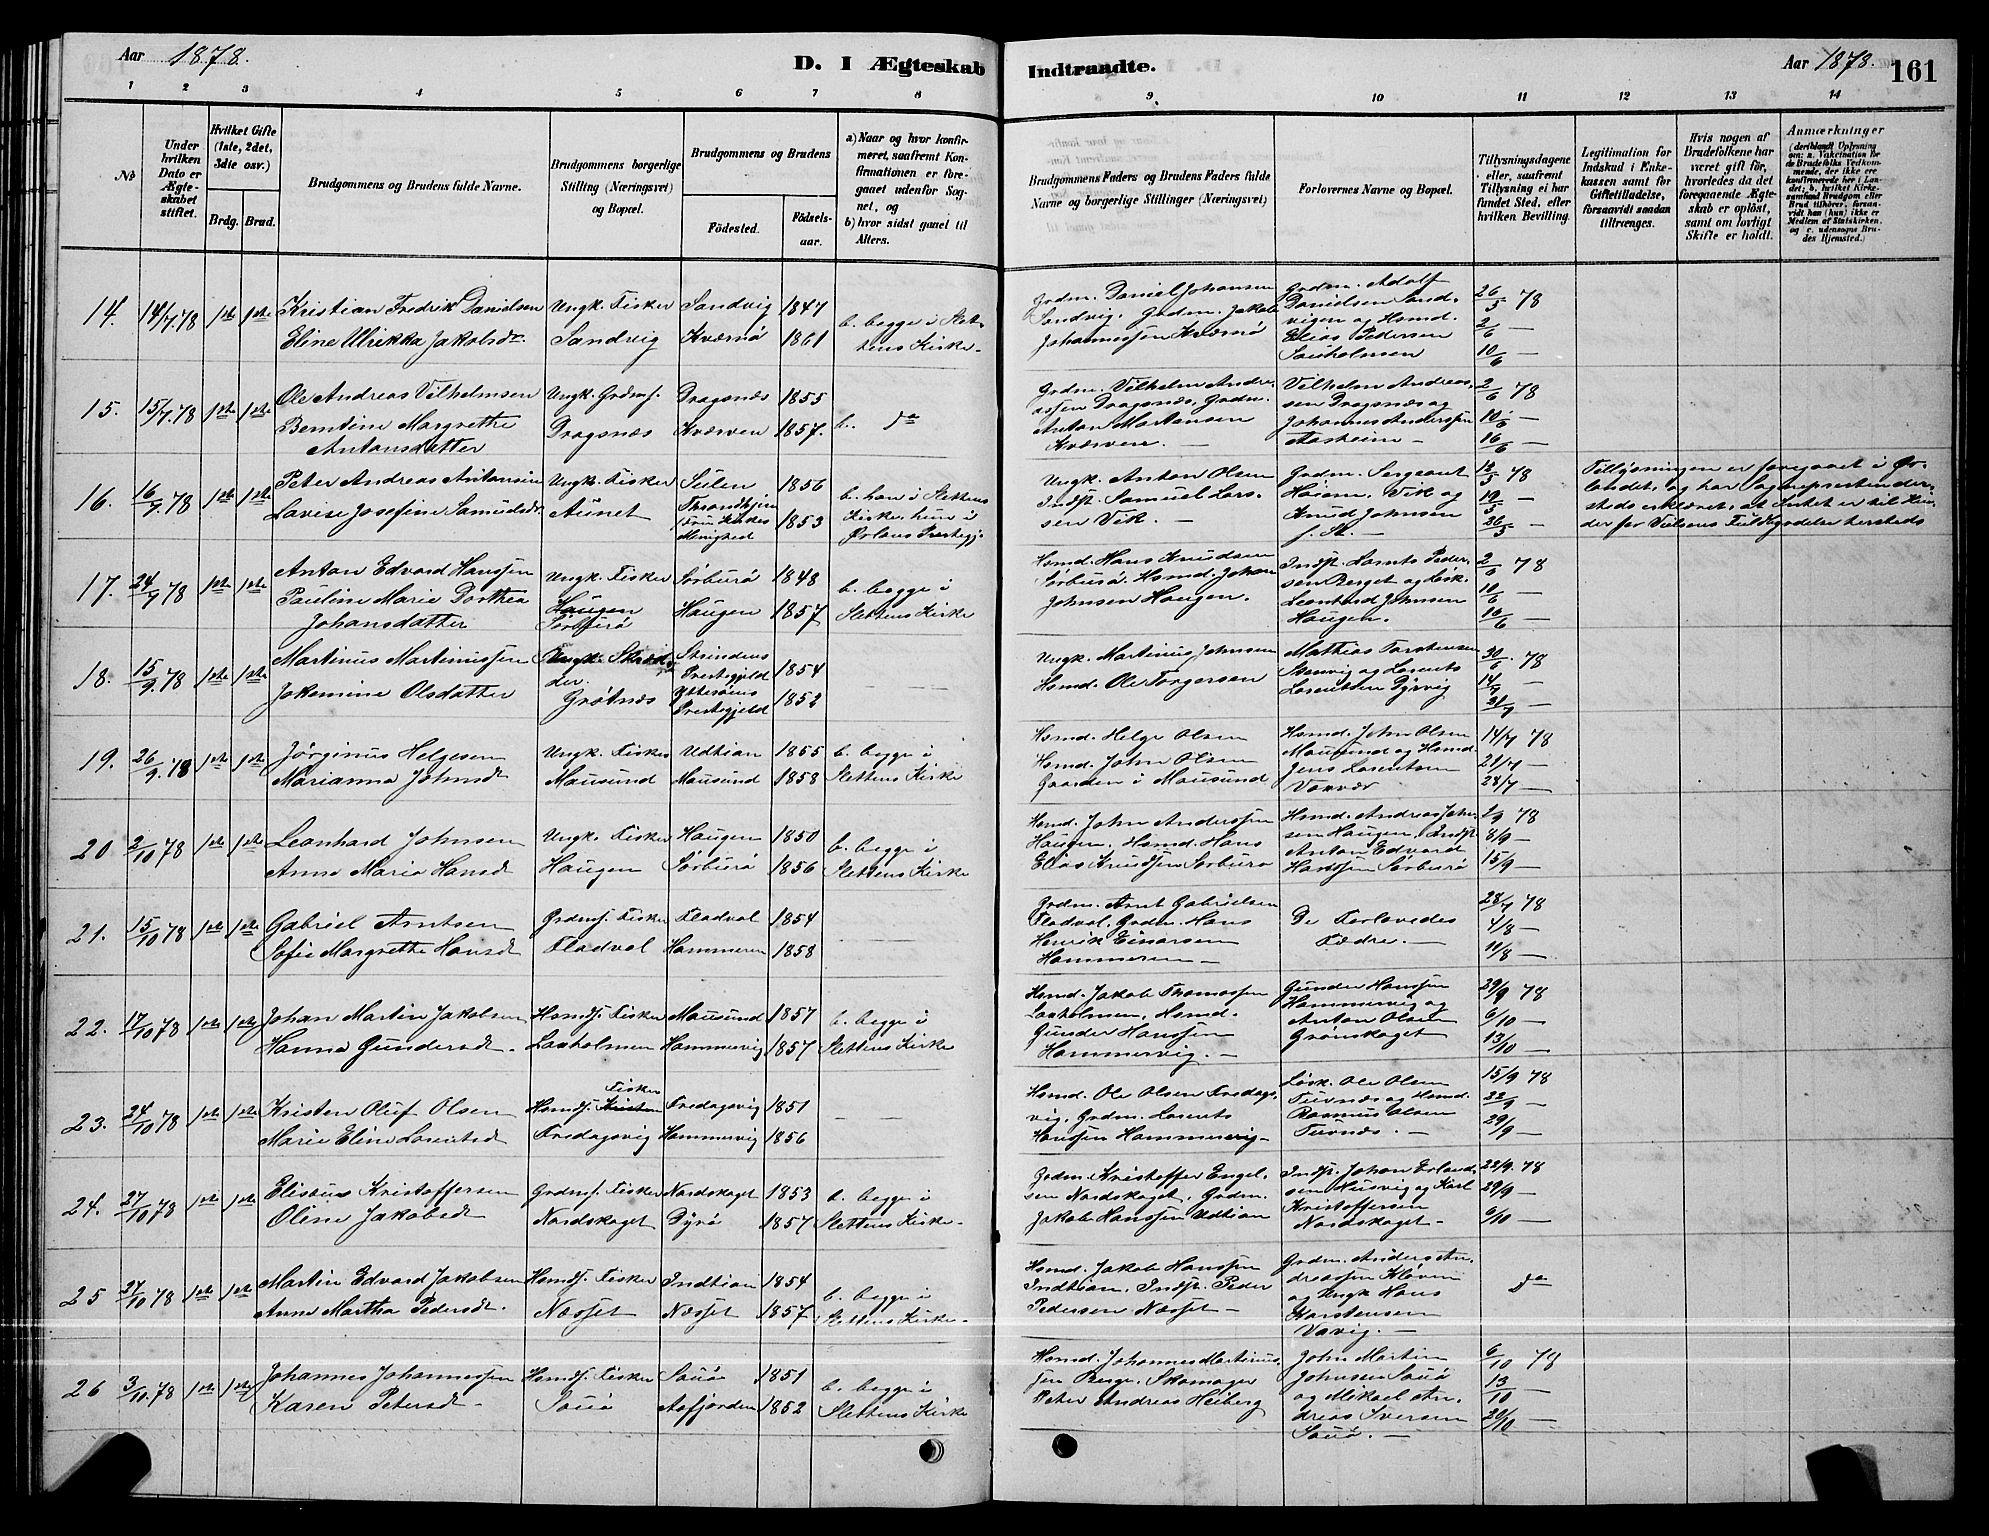 Aar 1878.
D. I Ægteskab Indtraadte.
Aar 1878.
161
1 2 3 4 5 6 7 8 9 10 11 12 13 14
No
Under hvilken Dato er Ægteskabet stiftet.
Hvilket Gifte (1ste, 2det, 3die osv.)
Brdg. Brud.
Brudgommens og Brudens fulde Navne.
Brudgommens borgerlige Stilling (Næringsvei) og Bopæl.
Brudgommens og Brudens
Födested.
Födsels-aar.
a) Naar og hvor konfirmeret, saafremt Konfirmationen er foregaaet udenfor Sognet, og
b) hvor sidst gaaet til Alters.
Brudgommens Faders og Brudens Faders fulde Navne og borgerlige Stillinger (Næringsvei)
Forlovernes Navne og Bopæl.
Tillysningsdagene eller, saafremt Tillysning ei har fundet Sted, efter hvilken Bevilling.
Legitimation for Indskud i Enkekassen samt for Giftetilladelse, forsaavidt saadan tiltrænges.
Hvis nogen af Brudefolkene har været gift før, hvorledes da det foregaaende Ægteskab er oplöst, samt om lovligt Skifte er holdt.
Anmærkninger
14. 14/7 78 1ste 1ste
Kristian Fredrik Danielsen
Eline Ulrikka Jakobsdr.
Ungk. Fisker
Sandvig
Sandvig 1847
Kværnø 1861
b. begge i Slettens Kirke.
Grdm. Daniel Johansen
Sandvig. Grdm. Jakob
Johannessen Kværnø
Grdm. Adolf
Danielsen Sandvigen og Hsmd.
Elias Pedersen
26/5 78
2/6 —
10/6 —
15. 15/7 78 1ste 1ste
Ole Andreas Vilhelmsen
Berntine Margrethe
Antonsdatter
Ungk. Grdms.
Dragsnæs
Dragsnæs 1855
Kværven 1857.
b. do
Grdm. Vilhelm Andreassen Dragsnæs, Grdm.
Anton Martensen
Kværven. —
Vilhelm Andreassen Dragsnæs og
Johannes Anderssen
Aasheim —
2/6 78
10/6 —
16/6 —
16. 16/7 78 1ste 1ste
Peter Andreas Antonsen
Lavise Josefine Samuelsdr.
Ungk. Fisker
Aunet
Sulen 1856
Throndhjem
Frue Kirkes
Menighed 1853
b. han i Slettens
Kirke, hun i
Ørlans Prestegj.
Ungk. Anton Olsen
Indst. Samuel Larssen Vik. —
Grdm. Sergeant
Høiem, Vik og
Knud Johnsen
12/5 78
19/5 —
26/5 —
Tillysningen er foregaaet i Ørlandet, og har Sognepræsten dersteds erklæret, at Intet er til Hinder for Vielsens Fuldbyrdelse hersteds
17. 24/7 78 1ste 1ste
Anton Edvard Hanssen
Pauline Marie Dorthea
Johansdatter
Ungk. Fisker
Haugen
Sørburø
Sørburø 1848
Haugen 1857
b. begge i
Slettens Kirke
Hsmd. Hans Knudsen
Sørburø. Hsmd. Johan
Johnsen Haugen.
Indst. Lornts Pedersen Berget og Løsk.
Leonhard Johnsen
Haugen.
2/6 78
10/6 —
16/6 —
18. 15/9 78 1ste 1ste
Martinus Martinussen
Jakomine Olsdatter
Ungk. Skrædder.
Grøtnæs
Strindens
Prestegjeld 1854
Ytterøens
Prestegjeld 1852
—
Ungk. Martinus Johnsen
Hsmd. Ole Torgersen
Mathias Torstensen
Stenvig og Lorents
Lorentsen Dyrvig
30/6 78
14/7 —
21/7 —
19. 26/9 78 1ste 1ste
Jørginus Helgesen
Marianna Johnsdr
Ungk. Fisker
Mausund
Udtian 1855
Mausund 1858
b. begge i
Slettens Kirke
Hsmd. Helge Olsen
Hsmd. John Olsen
Gaarden i Mausund
Hsmd. John Olsen
Mausund og Hsmd.
Jens Lorentsen
Vavær
14/7 78
21/7 —
28/7 —
20 2/10 78 1ste 1ste
Leonhard Johnsen
Anne Maria Hansdr
Ungk. Fisker
Haugen
Haugen 1850
Sørburø 1856
b. begge i
Slettens Kirke
Hsmd. John Anderssen
Haugen. Hsmd. Hans
Elias Knudssen Sørburø
Hsmd. Andreas Johnsen Haugen, Indst.
Anton Edvard
Hanssen Sørburø
1/9 78
8/9 —
15/9 —
21. 15/10 78 1ste 1ste
Gabriel Arntsen
Sofie Margrethe Hansdr
Grdms. Fisker
Fladval
Fladval 1854
Hammeren 1858
—
Grdm. Arnt Gabrielsen
Fladval. Grdm. Hans
Henrik Einarsen
Hammeren —
De Forlovedes
Fædre. —
28/7 78
4/8 —
11/8 —
22. 17/10 78 1ste 1ste
Johan Martin Jakobsen
Hanna Gundersdr.
Hsmds. Fisker
Laxholmen
Mausund 1857
Hammervig 1857
b. begge i
Slettens Kirke
Hsmd. Jakob Thomassen
Laxholmen, Hsmd.
Gunder Hanssen
Hammervig. —
Gunder Hanssen
Hammervig og
Anton Olsen
Grønskaget
29/9 78
6/10 —
13/10 —
23. 24/10 78 1ste 1ste
Kristen Oluf Olsen
Marie Eline Lorentsdr
Hsmds. Fisker
Fredagsvig
Fredagsvig 1851
Hammervig 1856
—
Hsmd. Ole Olsen Fredagsvig, Grdm. Lorents
Hanssen Hammervig —
Løsk. Ole Olsen
Tuvnæs og Hsmd.
Rasmus Olsen
Tuvnæs. —
15/9 78
22/9 —
29/9 —
24. 27/10 78 1ste 1ste
Elisæus Kristoffersen
Oline Jakobsdr
Grdms. Fisker
Nordskaget
Nordskaget 1853
Dyrø 1857
b. begge i
Slettens Kirke.
Grdm. Kristoffer Engelsen Nordskaget, Grdm.
Jakob Hanssen Udtian
Indst. Johan Erlandsen Husvig og Karl
Kristoffersen
Nordskaget —
22/9 78
29/9 —
6/10 —
25 27/10 78 1ste 1ste
Martin Edvard Jakobsen
Anne Martha Pedersdr.
Hsmds. Fisker
Næsset
Indtian 1854
Næsset 1857
b. begge i
Slettens Kirke.
Hsmd. Jakob Hanssen
Indtian, Indst. Peder
Pedersen Næsset —
Grdm. Anders Andreassen Kløven
og Ungk. Hans
Karstensen
Vavig. —
do
26 3/10 78 1ste 1ste
Johannes Johannessen
Karen Petersdr.
Hsmds. Fisker
Sauø
Sauø 1851
Aafjorden 1852
b. begge i
Slettens Kirke
Hsmd. Johannes Martinussen Berge. Skomager
Peter Andreas Heiberg
John Martin
Johnsen Sauø
og Mikael Andreas Iversen
Sauø. —
6/10 78
13/10
20/10 —